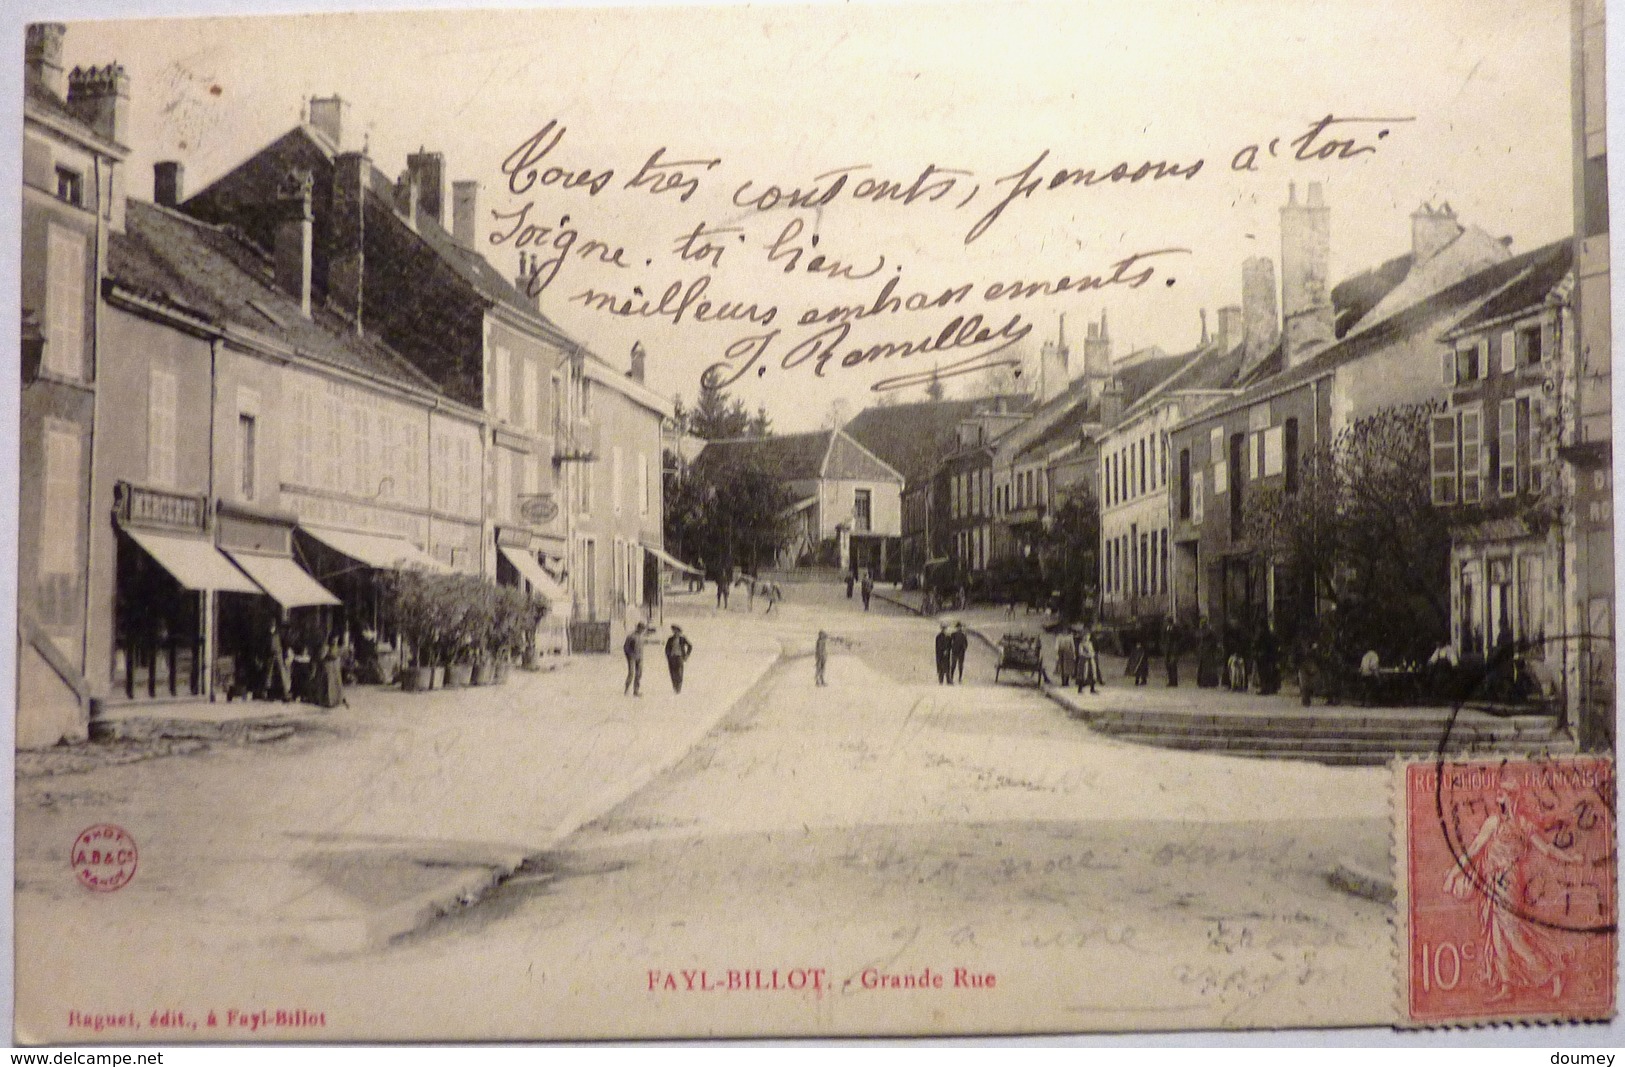 Tous très contents, pensons à toi
Soigne-toi bien.
meilleurs embrassements.
J. Ramillet
MERCERIE
REPUBLIQUE FRANÇAISE
10c
PHOT.
A.B & Cie
NANCY
FAYL-BILLOT. - Grande Rue
Raguet, édit., à Fayl-Billot
delcampe.net
doumey